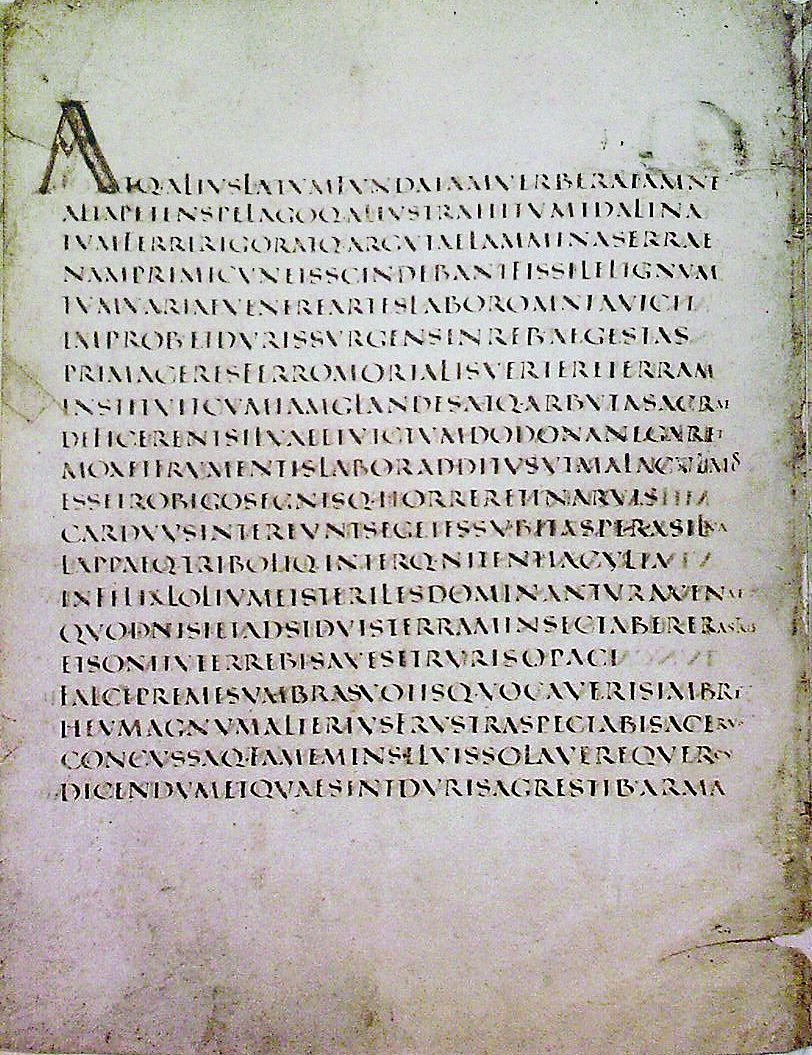 ATQALIVSLATVMFVNDAIAMVERBERATAMNE
ALTAPETENSPELAGOQALIVSTRAHITVMIDALINA
TVMFERRIRIGORATQARGVTAELAMMINASERRAE
NAMPRIMICVNEISSCINDEBANTFISSILELIGNVM
TVMVARIAEVENEREARTESLABOROMNIAVICIT
IMPROBETDVRISSVRGENSINREBAEGESTAS
PRIMACERESFERROMORTALISVERTERETERRAM
INSTITVITCVMIAMGLANDESATQARBVTASACRAE
DEFICERENTSILVAEETVICTVMDODONANEGARET
MOXETFRVMENTISLABORADDITVSVTMALACVLMOS
ESSETROBIGOSEGNISQHORRERETINARVIS
CARDVVSINTEREVNTSEGETESSVBITASPERASILVA
LAPPAEQTRIBOLIQINTERQNITENTIACVLTA
INFELIXLOLIVMETSTERILESDOMINANTVRAVENAE
QVODNISIETADSIDVISTERRAMINSECTABERERASTRIS
ETSONITVTERREBISAVESETRVRISOPACI
FALCEPREMESVMBRASVOTISQVOCAVERISIMBRE
HEVMAGNVMALTERIVSFRVSTRASPECTABISACERVO
CONCVSSAQFAMEMINSILVISSOLAVEREQVERCV
DICENDVMETQVAESINTDVRISAGRESTIBARMA